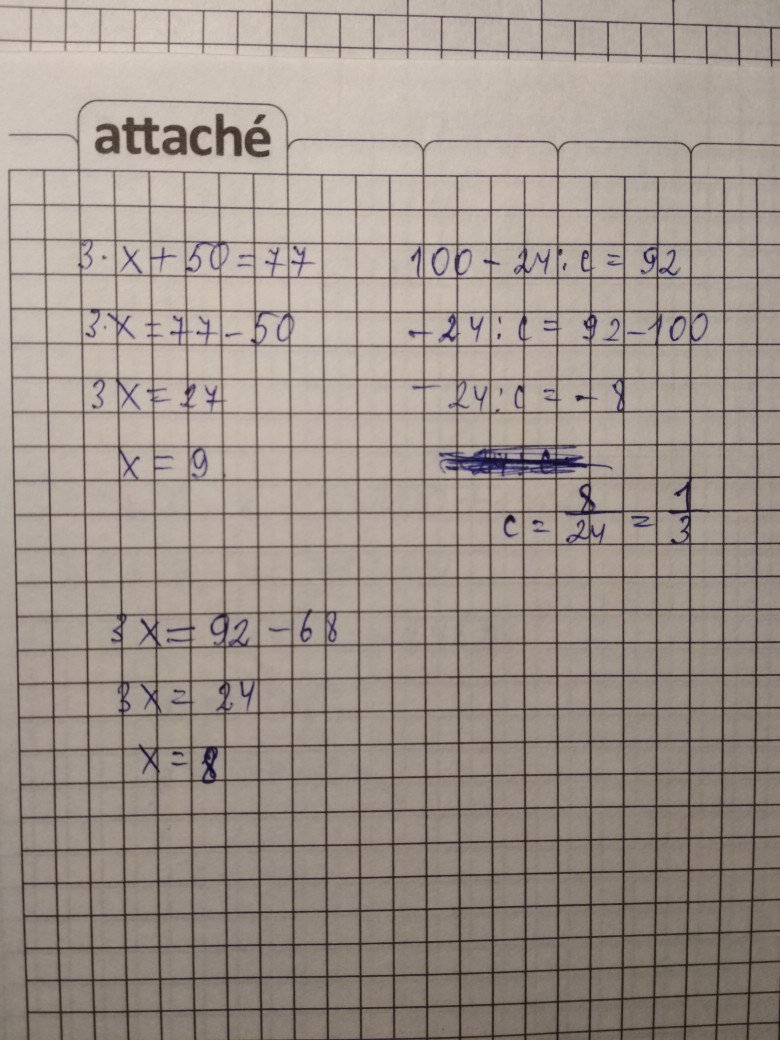 attaché
3·x+50=77
3·x=77-50
3x=27
x=9
100-24:c=92
-24:c=92-100
-24:c=-8
c=8/24=1/3
3x=92-68
3x=24
x=8